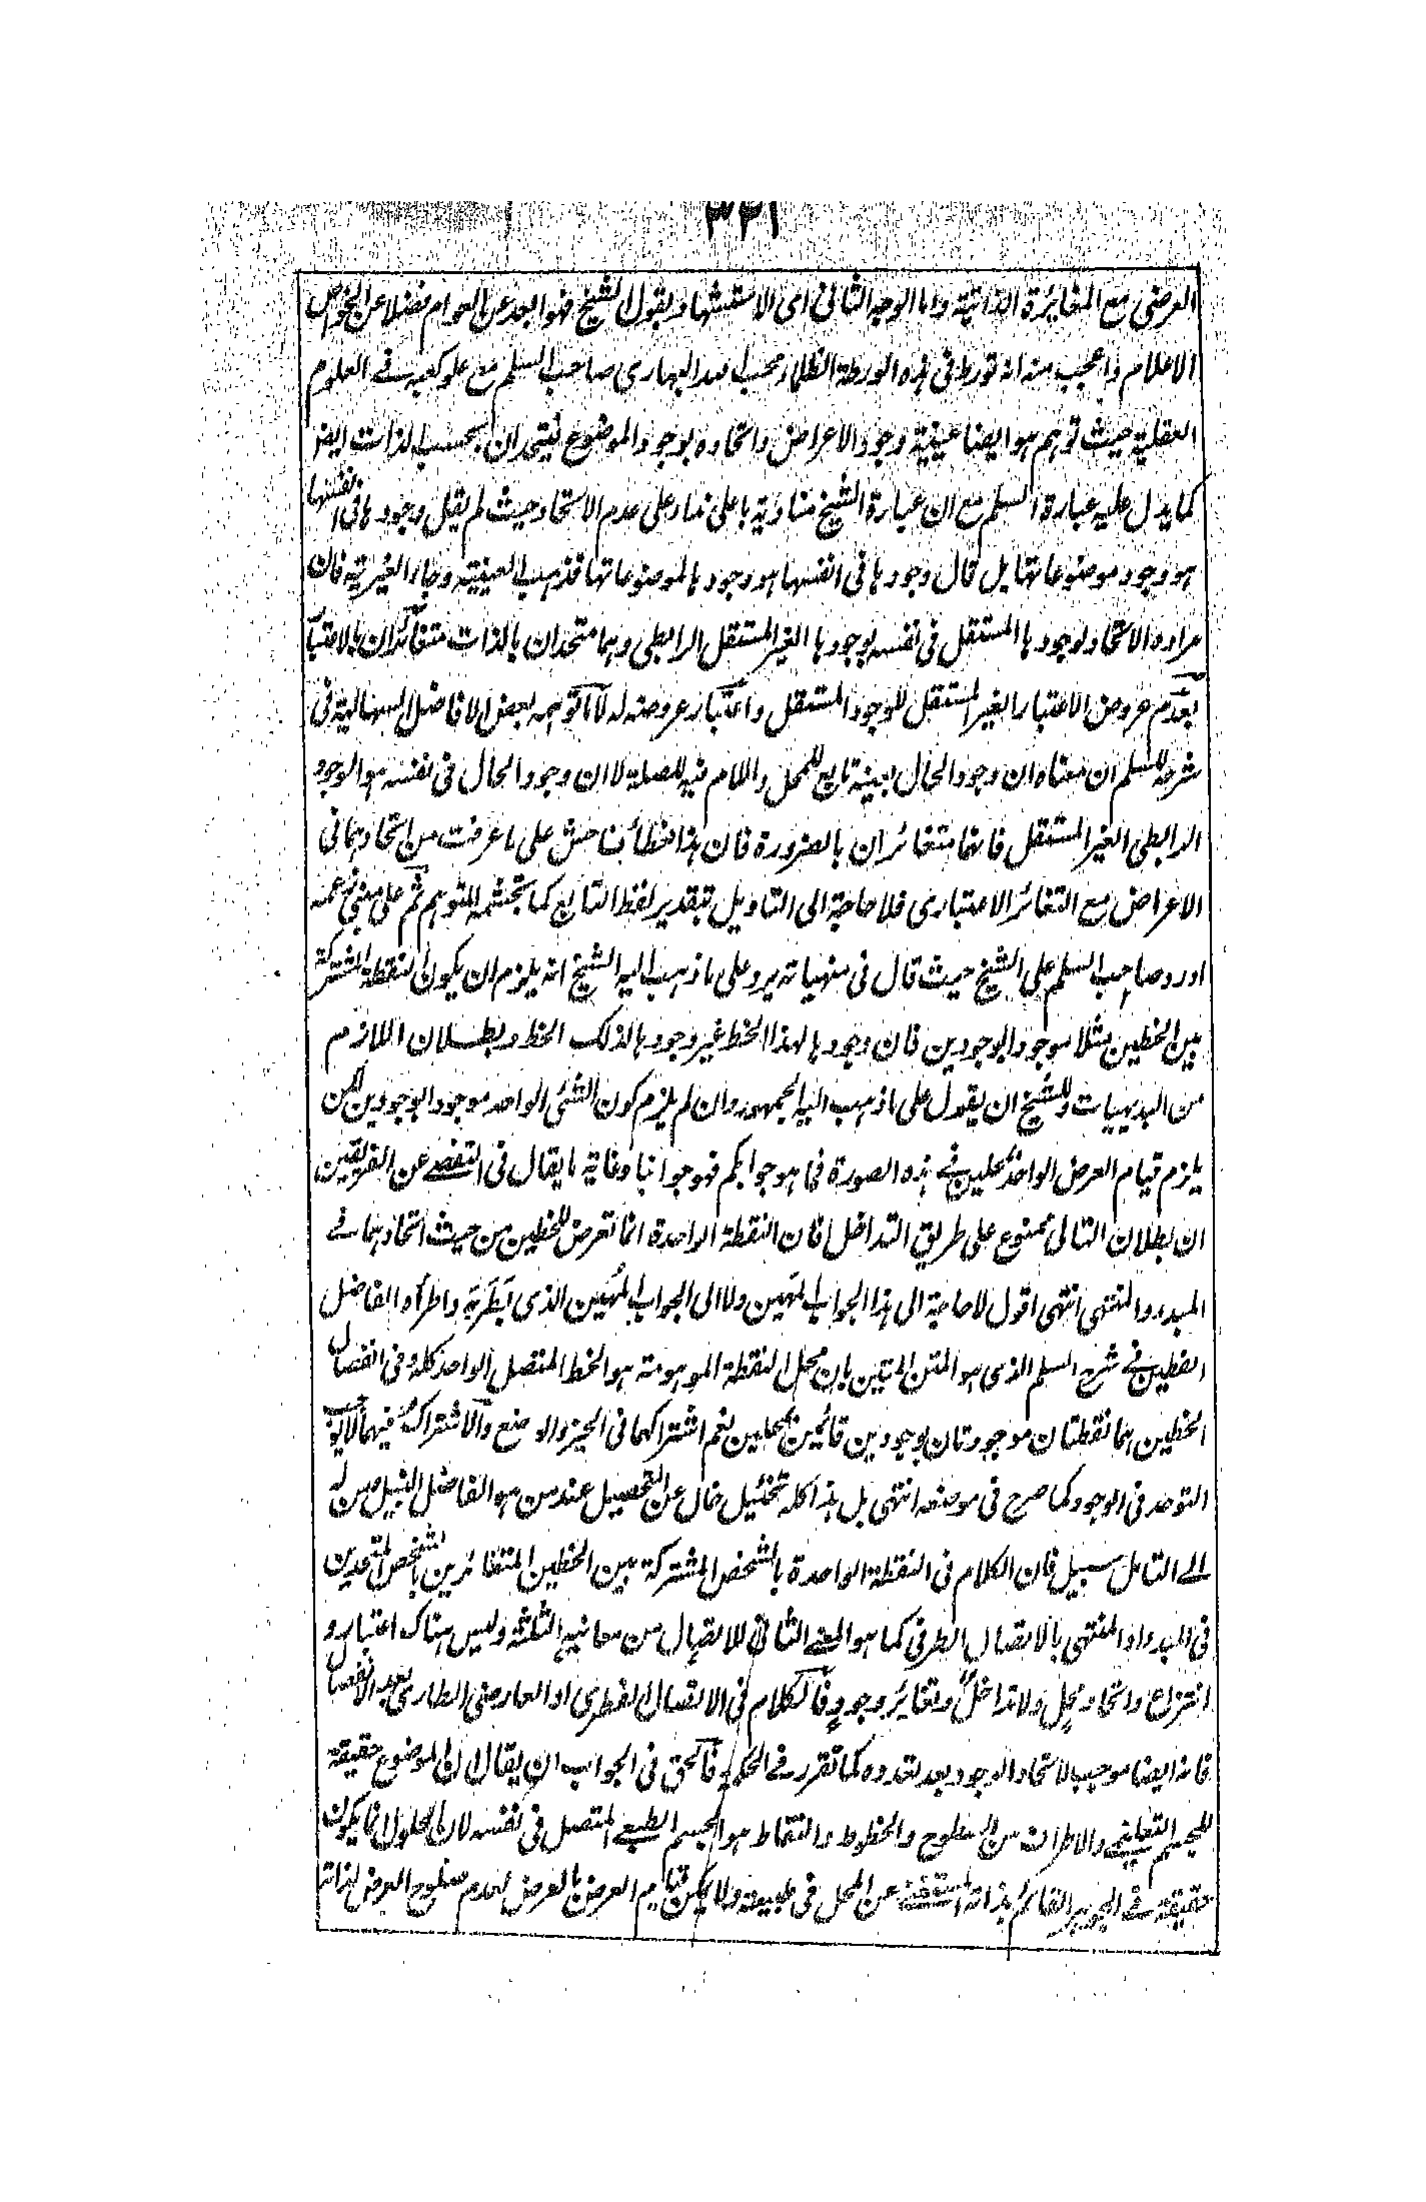 ٣٢١
العرضى مع المغائرة الذاتية واما الوجه الثانى اى الاستشهاد بقول الشيخ فهو ابعد عن العوام فضلا عن الخواص
الاعلام واعجب منه انه تورط فى هذه الورطة الظلماء محب الله البهارى صاحب السلم مع علو كعبه فى العلوم
العقلية حيث توهم هو ايضا عينية وجود الاعراض واتحاده بوجود الموضوع ليتحدان بحسب الذات ايضا
كما يدل عليه عبارة السلم مع ان عبارة الشيخ منادية باعلى نداء على عدم الاتحاد حيث لم يقل وجودها فى انفسها
هو وجود موضوعاتها بل قال وجودها فى انفسها هو وجودها لموضوعاتها فذهب العينية وجاء الغيرية فان
مراده الاتحاد لوجودها المستقل فى نفسه بوجودها الغير المستقل الرابطى وهما متحدان بالذات متغائران بالاعتبار
بعدم عروض الاعتبار الغير المستقل للوجود المستقل واعتبار عروضه له لا ما توهمه بعض الافاضل السهالية فى
شرحه للسلم ان معناه ان وجود الحال بعينه تابع للمحل واللام فيه للصلة لا ان وجود الحال فى نفسه هو الوجود
الرابطى الغير المستقل فانهما متغائران بالضرورة فان هذا خطأ فاحش على ما عرفت من اتحادهما فى
الاعراض مع التغائر الاعتبارى فلا حاجة الى التاويل بتقدير لفظ التابع كما تجشمه المتوهم ثم على مبنى زعمه
اورد صاحب السلم على الشيخ حيث قال فى منهياته يرد على ما ذهب اليه الشيخ انه يلزم ان يكون النقطة المشتركة
بين الخطين مثلا موجودا بوجودين فان وجودها لهذا الخط غير وجودها لذلك الخط وبطلان اللازم
من البديهيات وللشيخ ان يقول على ما ذهب اليه الجمهور وان لم يلزم كون الشئى الواحد موجودا بوجودين لكن
يلزم قيام العرض الواحد بمحلين فى هذه الصورة فما هو جوابكم فهو جوابنا وغاية ما يقال فى التفصى عن الفريقين
ان بطلان التالى ممنوع على طريق التداخل فان النقطة الواحدة انما تعرض للخطين من حيث اتحادهما فى
المبدء والمنتهى انتهى اقول لا حاجة الى هذا الجواب المهين ولا الى الجواب المهين الذى واطراه الفاضل
الفطين فى شرح السلم الذى هو المتن المتين بان محل النقطة الموهومة هو الخط المتصل الواحد كله وفى انفصال
الخطين هما نقطتان موجودتان بوجودين قائمين بمحلين نعم اشتراكهما فى الحيز والوضع والاشتراك فيهما لا يوجب
التوحد فى الوجود كما صرح فى موضعه انتهى بل هذا كله تخئيل خال عن التحصيل عند من هو الفاضل النبيل ومن له
الى التامل سبيل فان الكلام فى النقطة الواحدة بالشخص المشتركة بين الخطين المتغائرين بالشخص المتحدين
فى المبدء او المنتهى بالاتصال الطرفى كما هو المعنى الثانى للاتصال من معانيه الثلثة وليس هناك اعتبار و
انتزاع واتحاد محل ولا تداخل وتغائر وجود فالكلام فى الاتصال الفطرى او العارضى الطارى بعد الانفصال
فانه ايضا موجب لاتحاد الوجود بعد تعدده كما تقرر فى الحكمة فالحق فى الجواب ان يقال ان الموضوع حقيقة
للجسم التعليمى والاطراف من السطوح والخطوط والنقاط هو الجسم الطبيعى المتصل فى نفسه لان الحلول انما يكون
حقيقة فى الجوهر القائم بذاته المستغنى عن المحل فى طبيعته ولا يمكن قيام العرض بالعرض لعدم صلوح العرض لذاته